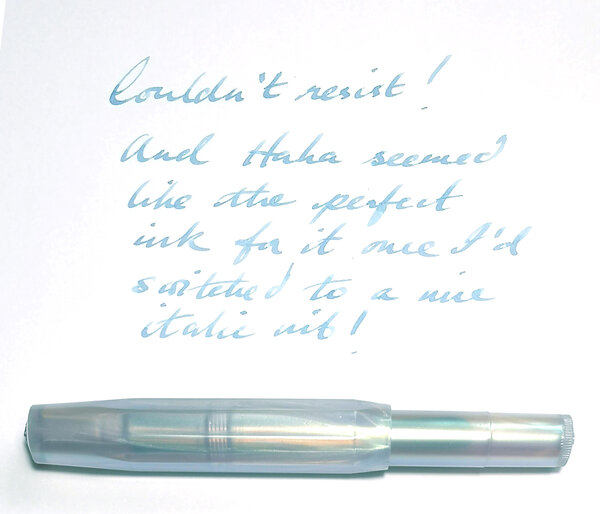 Couldn't resist!
And Haha seemed
like the perfect
ink for it once I'd
switched to a nice
italic nib!